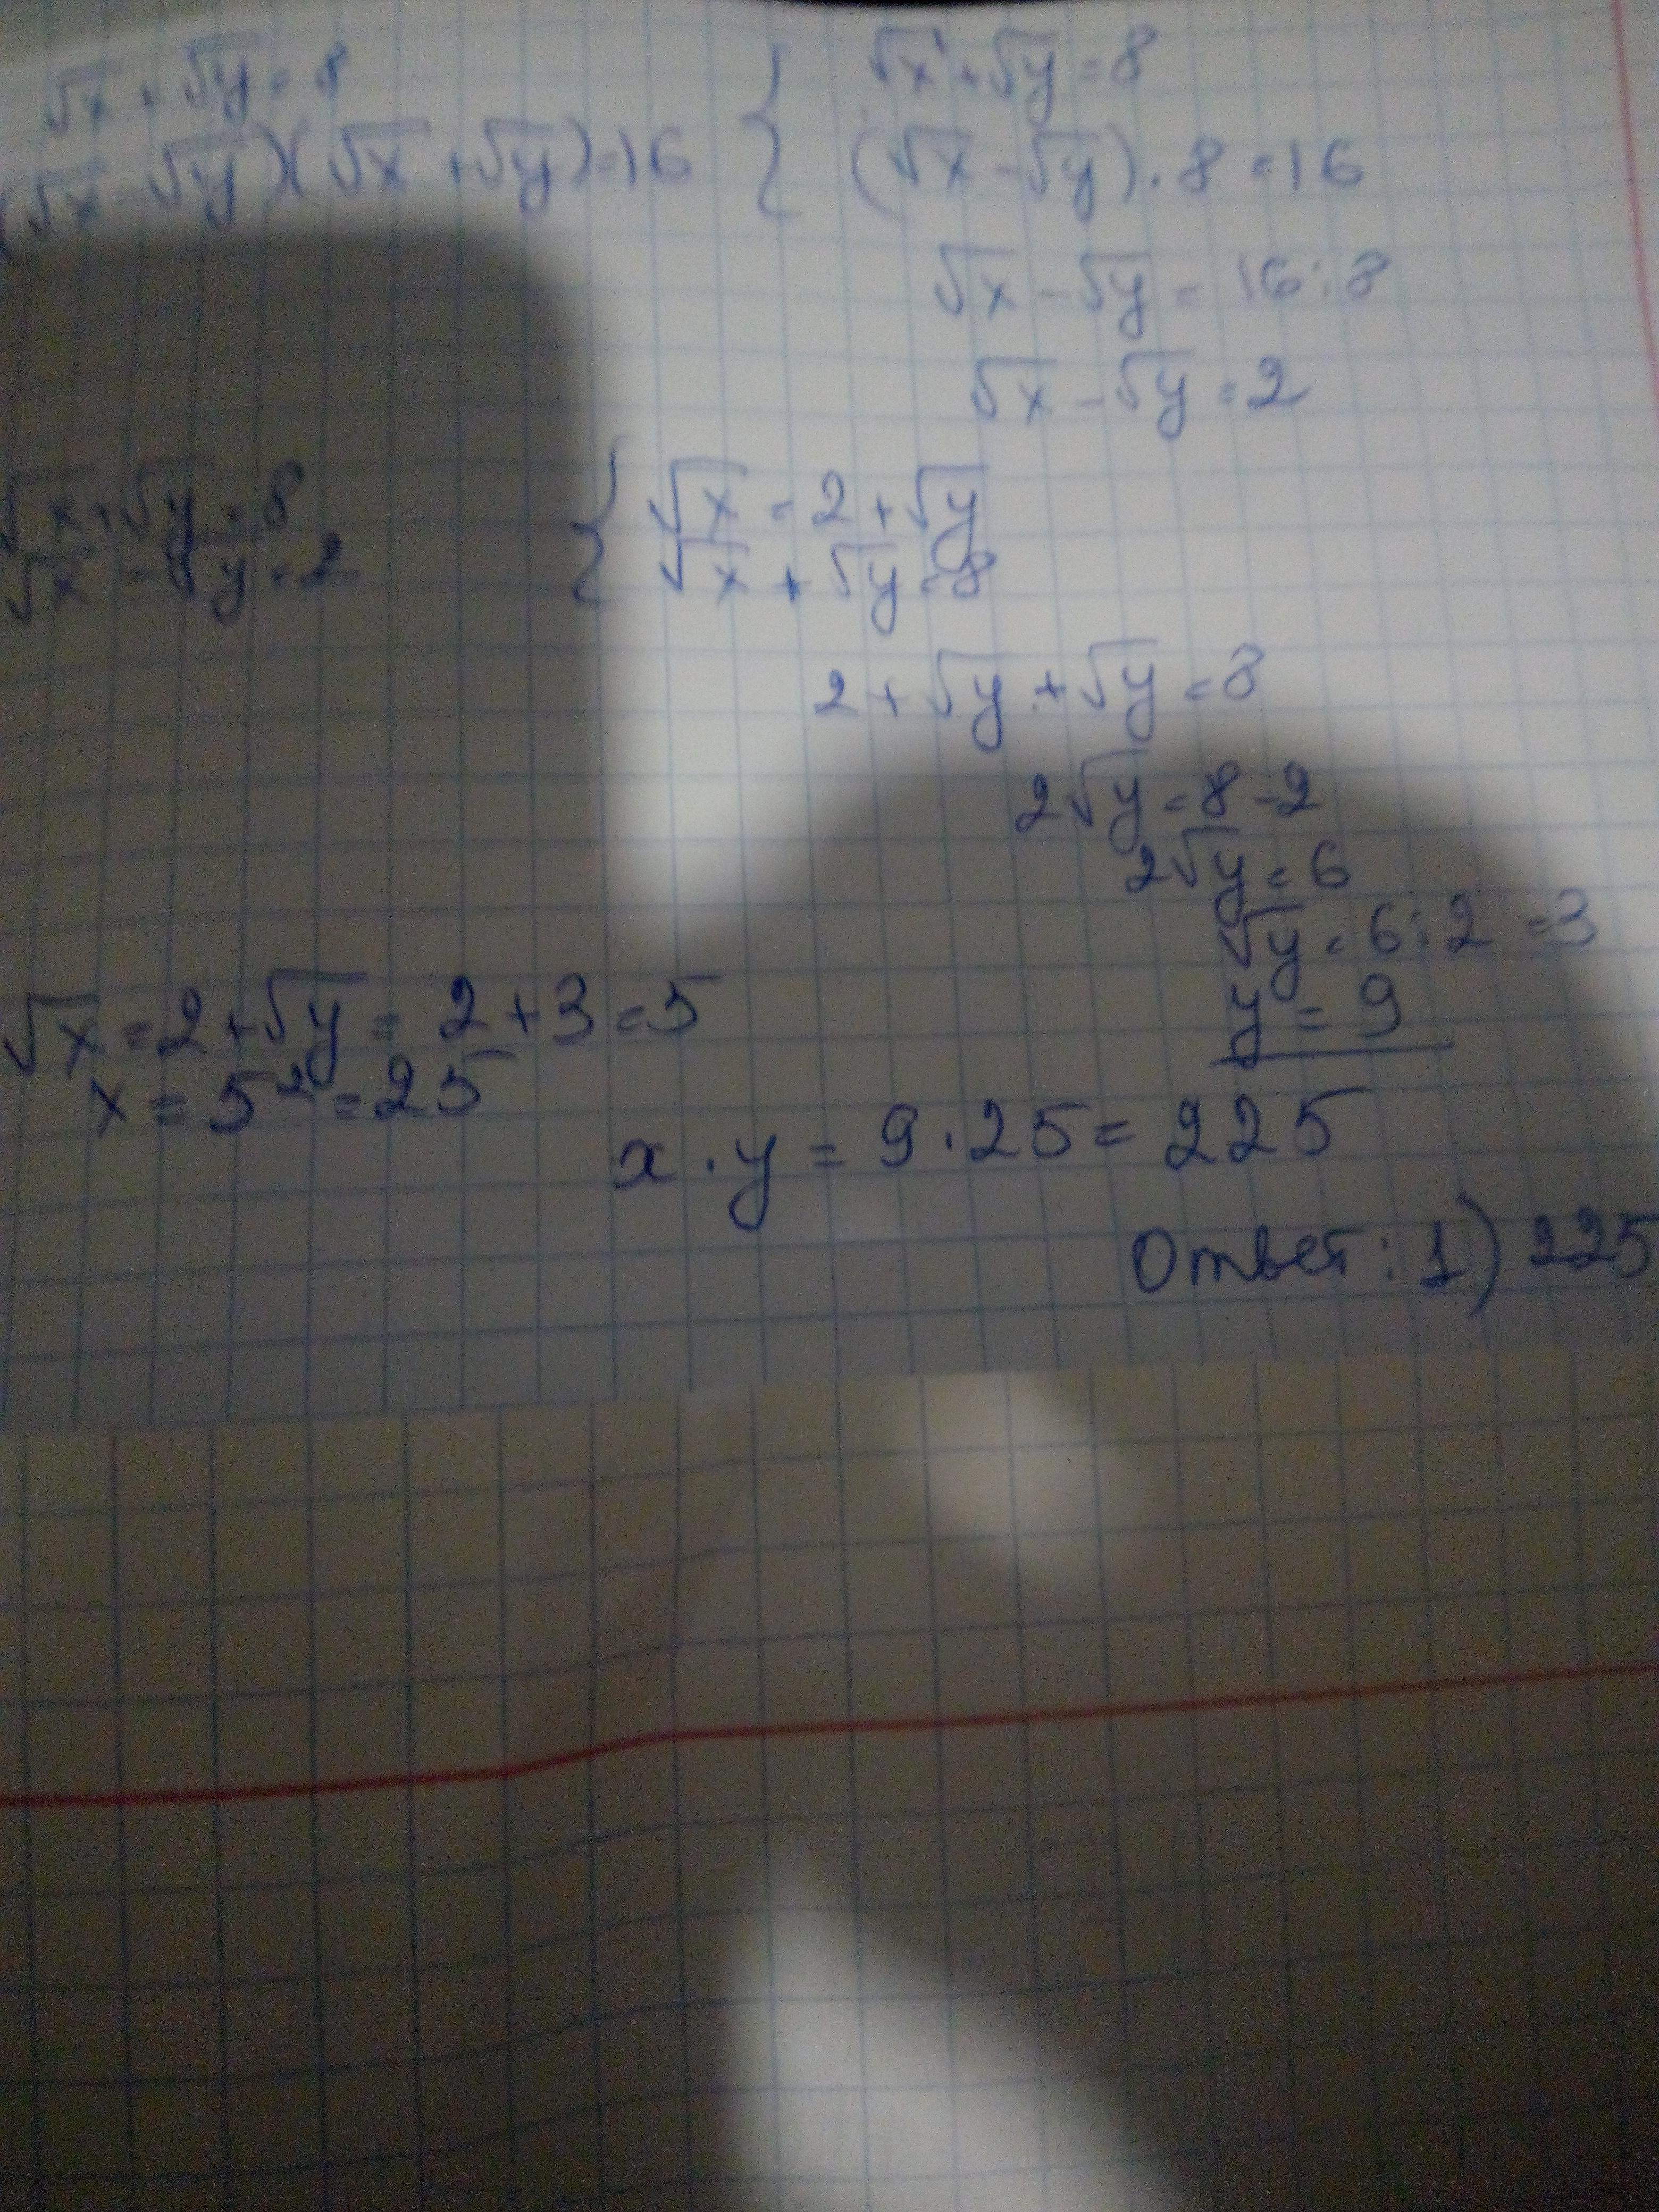 √x + √y = 8
(√x - √y)(√x + √y) = 16
{ √x + √y = 8
(√x - √y) · 8 = 16
√x - √y = 16 : 8
√x - √y = 2
√x + √y = 8
√x - √y = 2
{ √x = 2 + √y
√x + √y = 8
2 + √y + √y = 8
2√y = 8 - 2
2√y = 6
√y = 6 : 2 = 3
y = 9
√x = 2 + √y = 2 + 3 = 5
x = 5² = 25
x · y = 9 · 25 = 225
Ответ: 1) 225